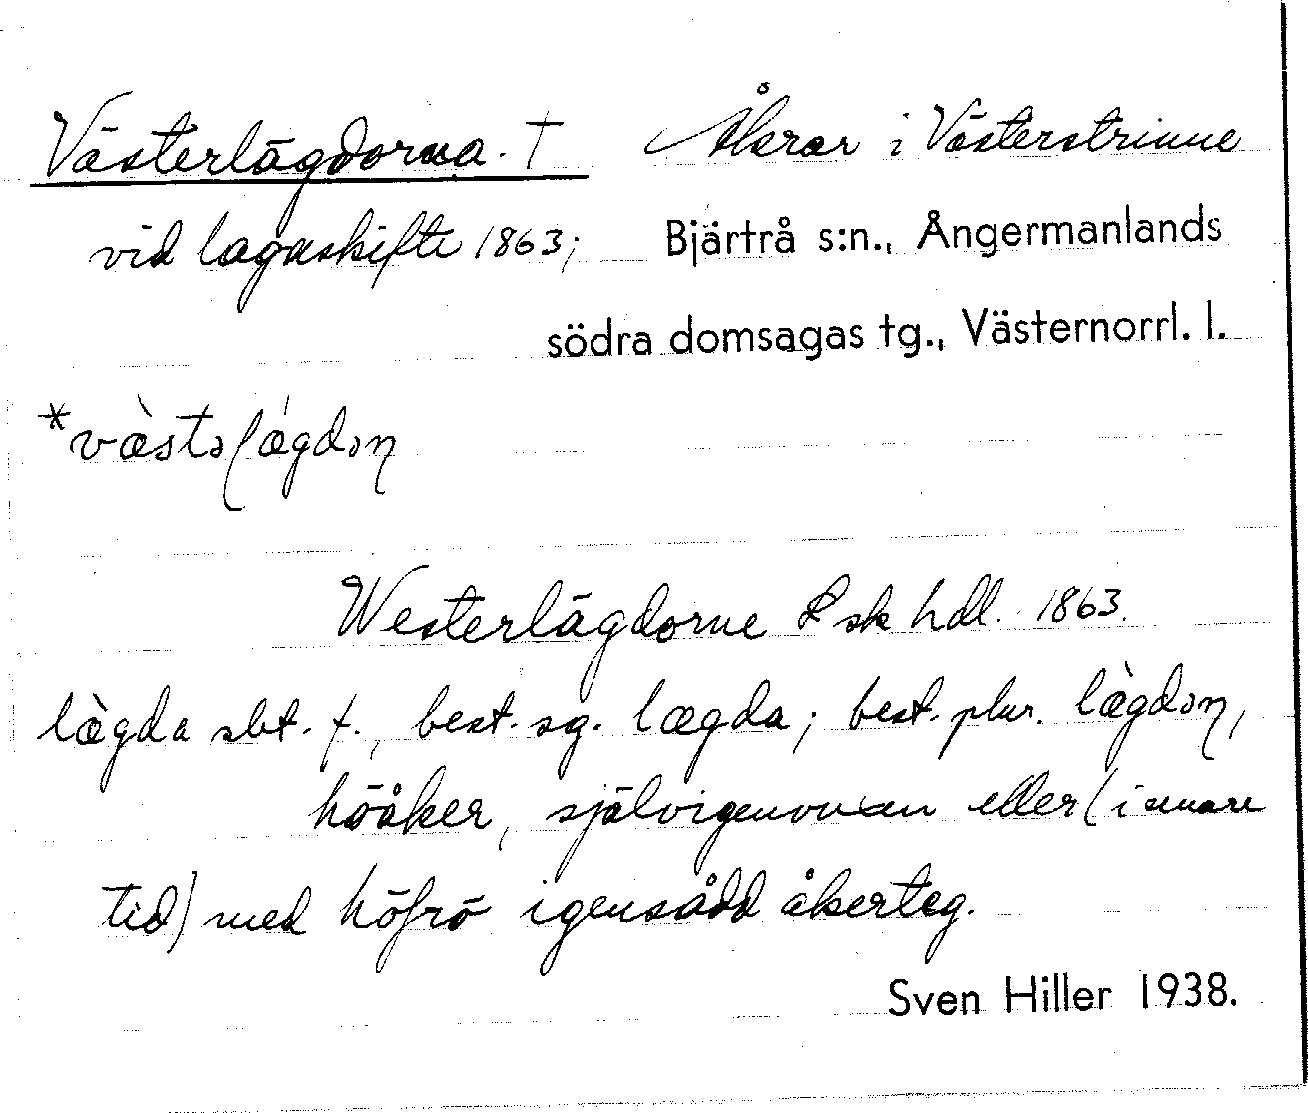 Västerlägdorna. † Åkrar i Västerstrinne
vid lagaskifte 1863; Bjärtrå s:n., Ångermanlands
södra domsagas tg., Västernorrl. l.
*væ̀stəɭæ̀gdəɳ
Westerlägdorne Lsk hdl. 1863.
læ̀gda sbt. f., best. sg. lægda; best. plur. læ̀gdəɳ,
höåker, självigenvuxen eller (i senare
tid) med höfrö igensådd åkerteg.
Sven Hiller 1938.